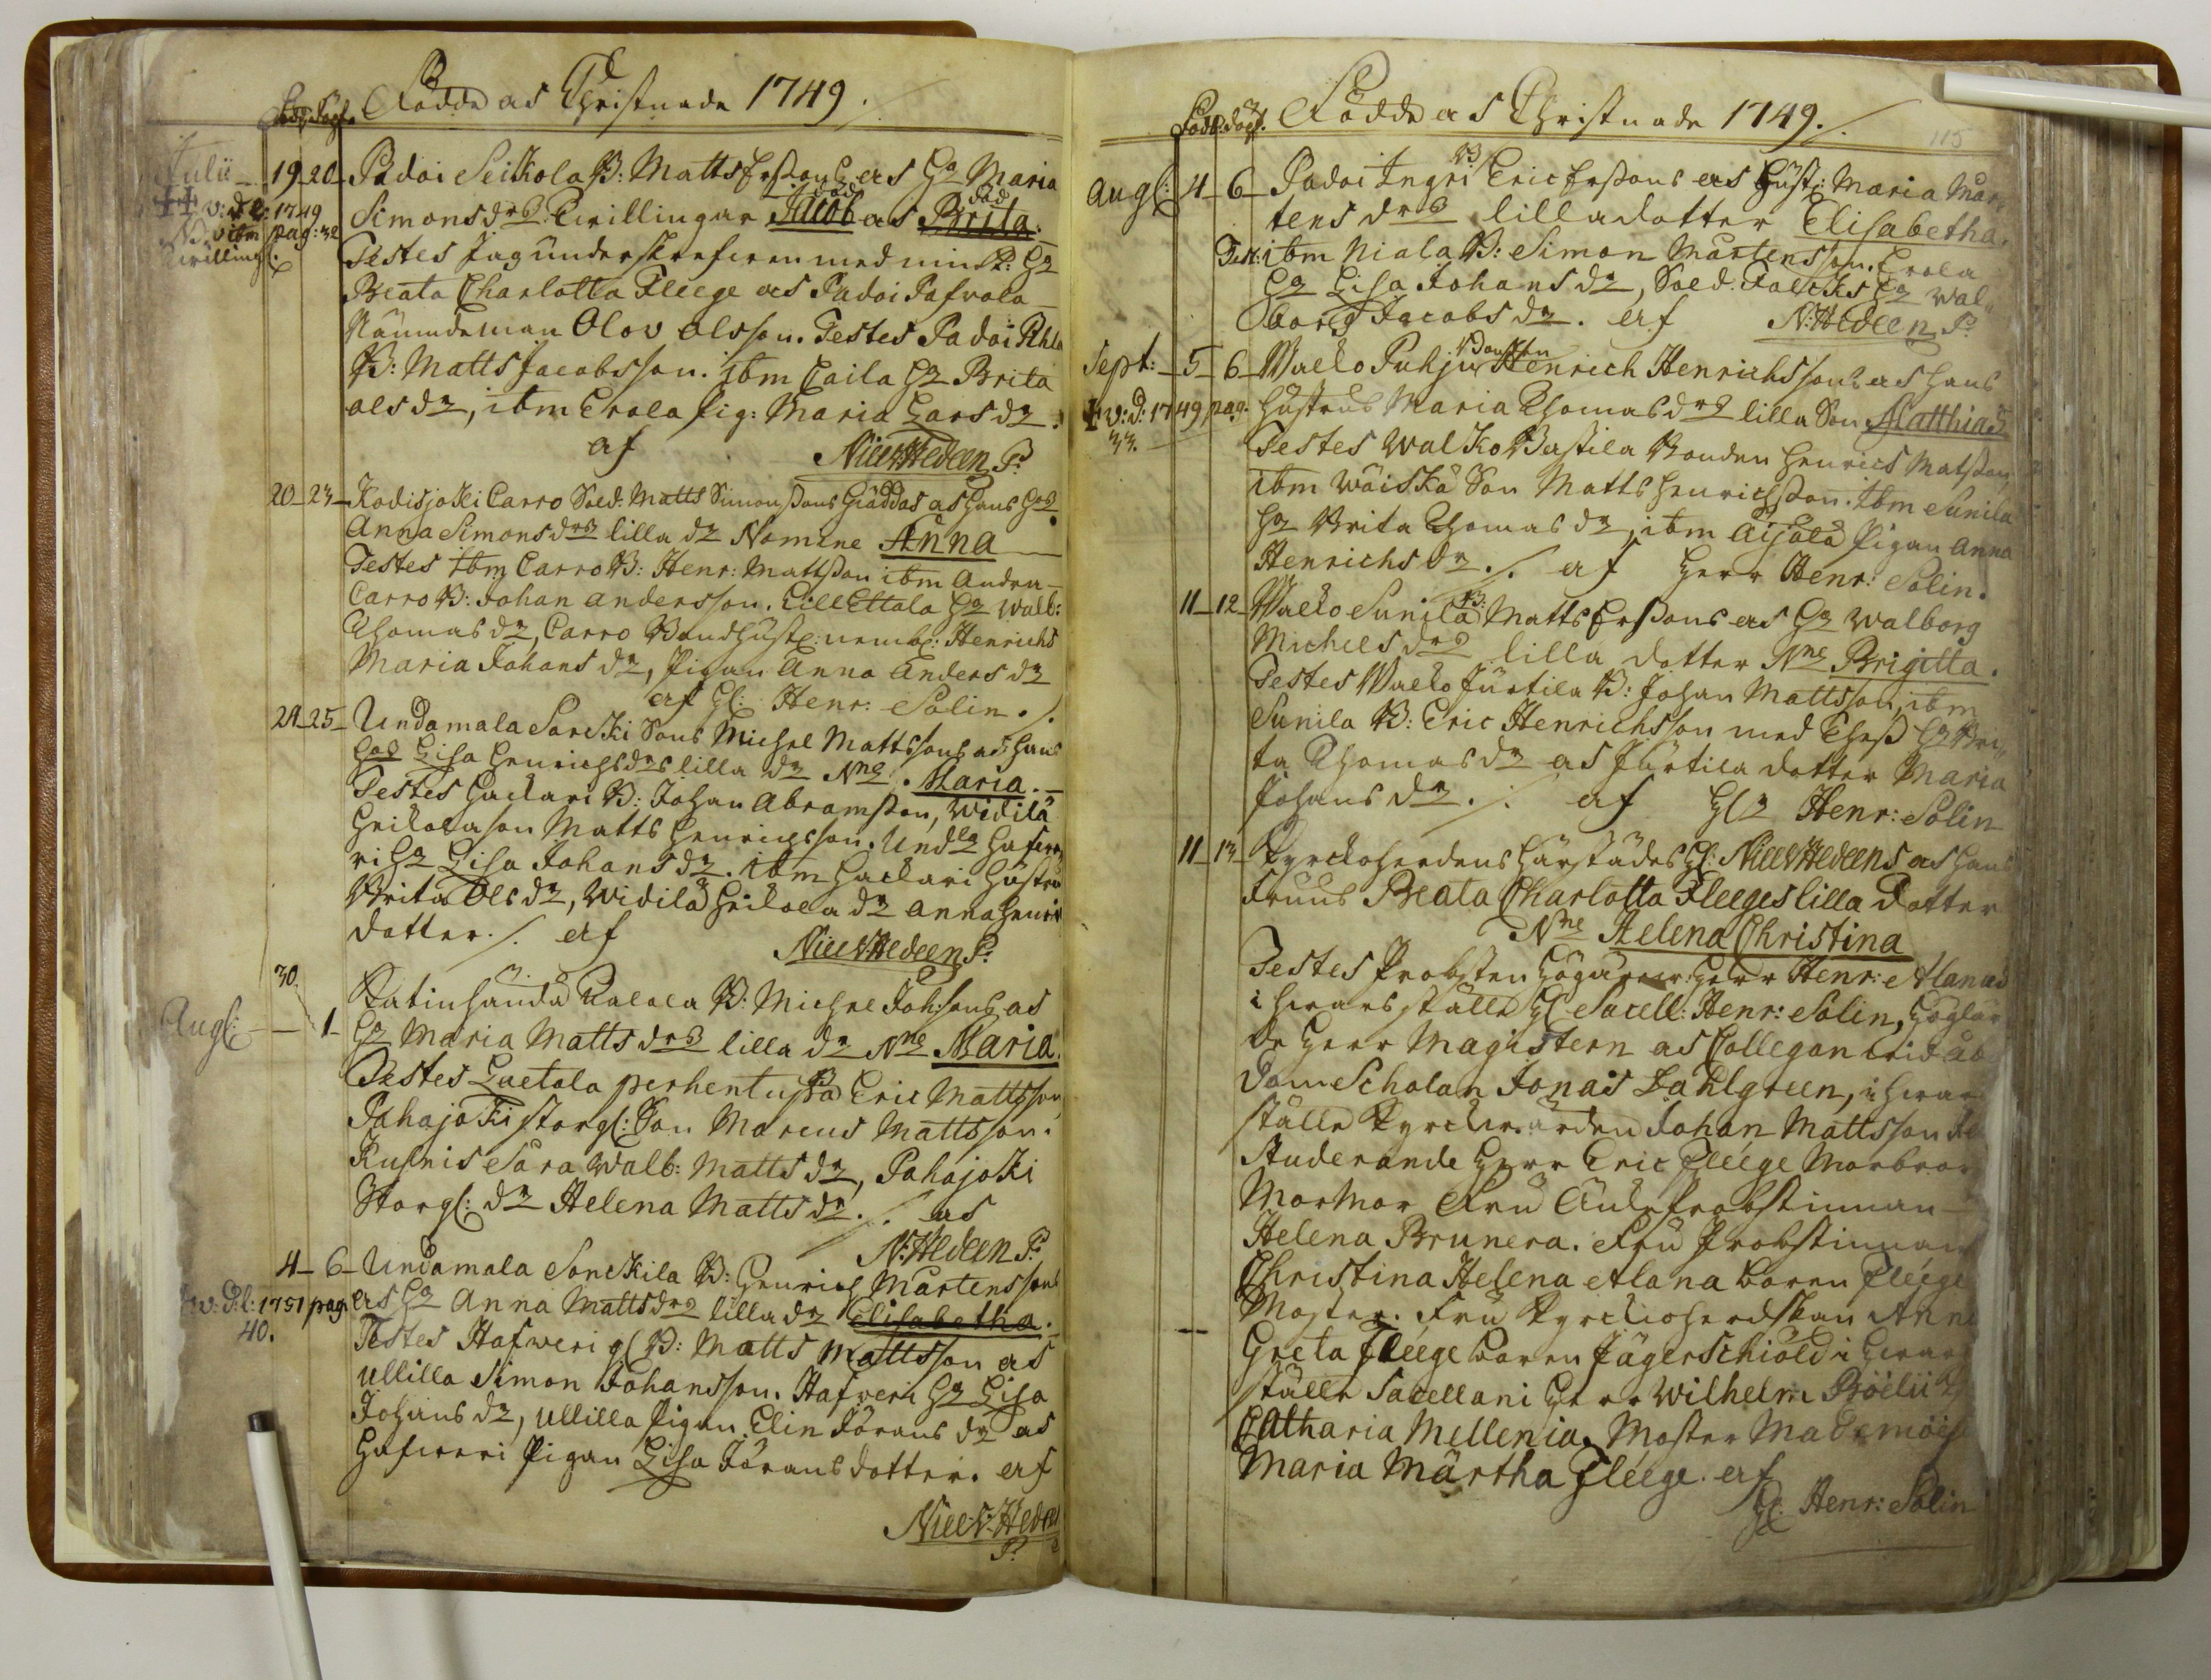 Född. dögt. Födde as Christnade 1749.
Julii 19 20 Padoi Seikola B: Matts Erssons as H⁠a Maria
v: d l: 1749 Simonsdrs Twillingar Jacob död as Brita död
pag: 32
Twilling
Testes Jag underskrefwen med min K: H⁠a
Beata Charlotta Fleege as Padoi Pafvola
Nämndeman Olov Olsson. Testes Padoi
B: Matts Jacobsson. ibm Caila H⁠a Brita
Olsdr, ibm Erola pig: Maria Larsdr.
af Nils V Hedeen P.
20 23 Kodisjoki Carro Sold: Matts Simonssons Gräddas as hans H⁠as
Anna Simonsdrs lilla dr Nomine Anna
Testes ibm Carro B: Henr: Mattsson ibm Andra
Carro B: Johan Andersson. Lill Ettala H⁠a Walb:
Thomasdr, Carro Henrichs
Maria Johansdr, Pigan Anna Andersdr
af Hl: Henr: Solin ./.
24 25 Undamala Sarcki Sons Michel Mattssons as hans
H⁠as Lisa Henrichsdrs lilla dr Nne. Maria.
Testes Hackari B: Johan Abramsson, Widilä
Heikola son Matts Henrichsson. Und⁠la Hafwe
ri H⁠a Lisa Johansdr. ibm Hackari Hustru
Brita Olsdr, Widilä Heikola dr Anna Henrichs
dotter ./. af Nils V Hedeen P.
30.
Aug: 1 Katinhanda Ualola B: Michel Johssons as
H⁠a Maria Mattsdrs lilla dr Nne Maria.
Testes Luetola perhentupa B Eric Mattsson,
Pahajoki storg: Son Marcus Mattsson.
Kusnis Sara Walb: Mattsdr, Pahajoki
Storg: dr Helena Mattsdr ./. as
N: Hedeen P.
4 6 Undamala Sonckila B: Henrich Mårtenssons
v: d: l: 1751 pag 40. as H⁠a Anna Mattsdrs lilla dr Elisabetha.
Testes Hafweri gl B: Matts Mattsson as
Ullilla Simon Johansson. Hafveri H⁠a Lisa
Johansdr, Ullilla Pigan Elin Jöransdr as
Hafweri Pigan Lisa Jöransdotter. af
Niels V. Hedeen
P.
Född. dögt. Födde as Christnade 1749 ./.
115
Aug: 4 6 Padoi Ingri B Eric Erssons as Hust: Maria Mår
tensdrs lilla dotter Elisabetha.
Test: ibm Niala B: Simon Mårtensson. Erola
H⁠a Lisa Johansdr, Sold. Falcks H⁠a Wal
borg Jacobsdr. af N: Hedeen P.
Sept: 5 6 Waldo Puhju Bonden Henrich Henrichssons as hans
v: d: 1749 pag. 33. Hustrus Maria Thomasdrs lilla Son Matthias
Testes Walko Bastila Bonden Henrics Matsson,
ibm Wäiskä Son Matts Henrichsson. ibm Sunila
H⁠a Brita Thomasdr, ibm Aijälä Pigan Anna
Henrichsdr ./. af Herr Henr: Solin.
11 12 Waldo Sunila B: Matts Erssons as H⁠a Walborg
Michelsdrs lilla dotter Nne Brigitta.
Testes Waldo Jürtila B: Johan Mattsson, ibm
Sunila B: Eric Henrichsson med Thess H⁠a Bri
ta Thomasdr as Jürtila dotter Maria
Johansdr ./. af Hl⁠r Henr: Solin
11 13 Kyrckoherdens härstädes Hl: Niels V Hedeens as hans
Fruus Beata Charlotta Fleeges lilla Dotter
Nne Helena Christina
Testes Probsten Herr Henr: Alanus
i hwars ställe Hl Sacell: Henr: Solin, Höglär
de Herr Magistern as Collegan wid Åbo
Dom Scholan Jonas Dahlgreen, i hwars
ställe Kyrckiowärden Johan Mattsson
Studerande Herr Eric Fleege Morbror
Mormor Fru Änke Probstinnan
Helena Brunera. Fru Probstinnan
Christina Helena Alana boren Fleege
Moster. Fru Kyrckioherdskan Anna
Greta Fleege boren Jägerschiöld i hwars
ställe Sacellani Herr Wilhelm Böelii
Catharia Mellenia. Moster Mademöiselle
Maria Märtha Fleege. af
Hl: Henr: Solin